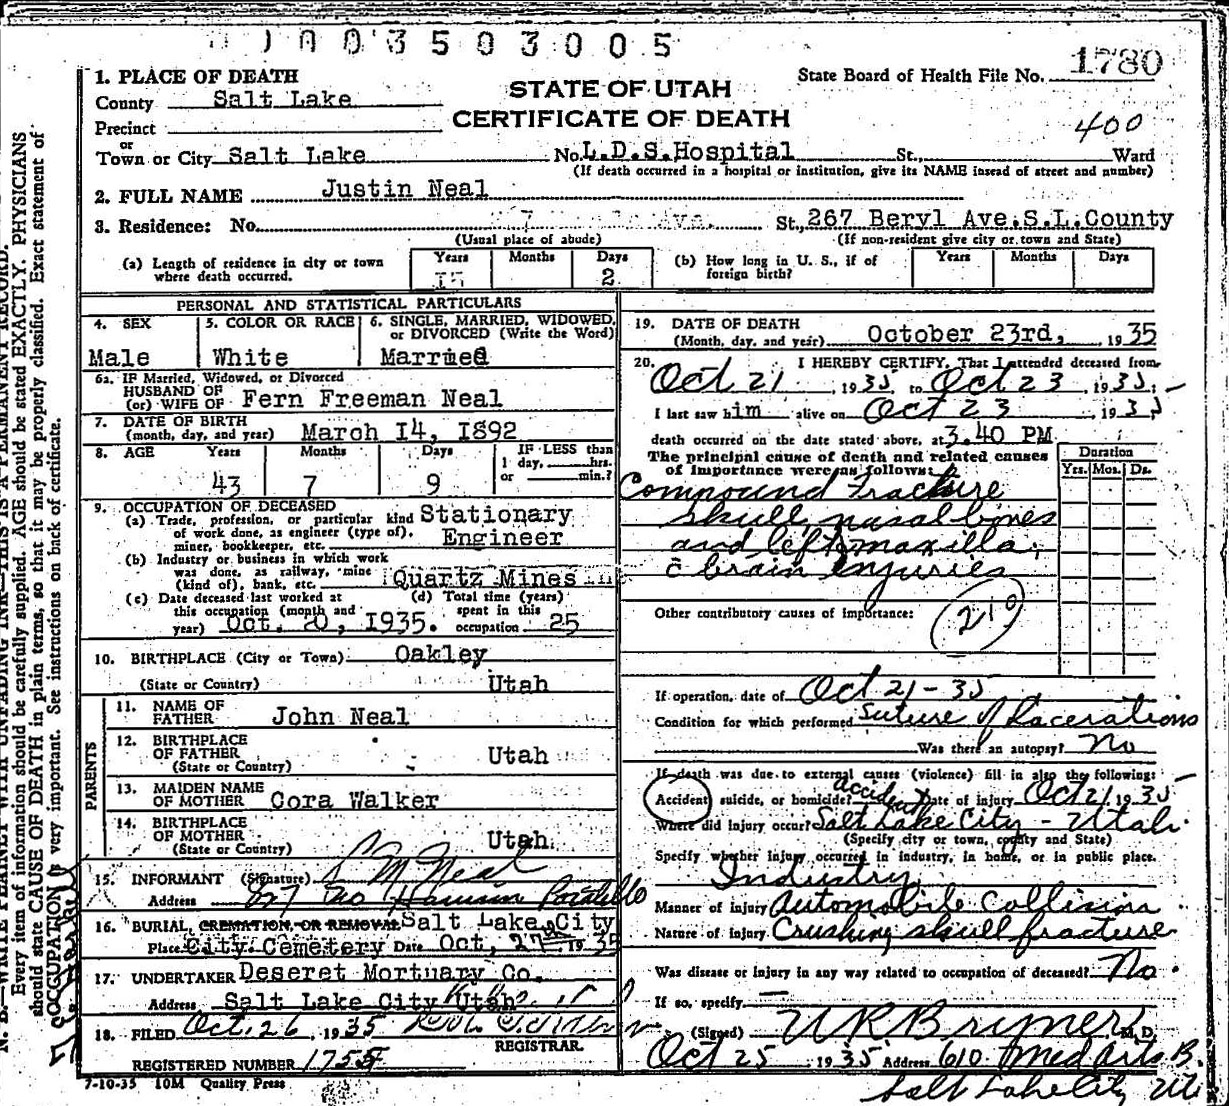 1003503005
1780
State Board of Health File No.
STATE OF UTAH
CERTIFICATE OF DEATH
400
1. PLACE OF DEATH
County Salt Lake
Precinct
or
Town or City Salt Lake No. L.D.S. Hospital St., Ward
(If death occurred in a hospital or institution, give its NAME insead of street and number)
2. FULL NAME Justin Neal
3. Residence: No. St., 267 Beryl Ave.S.L.County
(Usual place of abude) (If non-resident give city or town and State)
(a) Length of residence in city or town where death occurred. Years 15 Months Days 2
(b) How long in U. S., if of foreign birth? Years Months Days
PERSONAL AND STATISTICAL PARTICULARS
4. SEX Male
5. COLOR OR RACE White
6. SINGLE, MARRIED, WIDOWED, or DIVORCED (Write the Word) Married
6a. IF Married, Widowed, or Divorced
HUSBAND OF
(or) WIFE OF Fern Freeman Neal
7. DATE OF BIRTH
(month, day, and year) March 14, 1892
8. AGE Years 43 Months 7 Days 9
IF LESS than
1 day, hrs.
or min.?
9. OCCUPATION OF DECEASED
(a) Trade, profession, or particular kind of work done, as engineer (type of), miner, bookkeeper, etc. Stationary Engineer
(b) Industry or business in which work was done, as railway, mine (kind of), bank, etc. Quartz Mines
(c) Date deceased last worked at this occupation (month and year) Oct. 20, 1935.
(d) Total time (years) spent in this occupation 25
10. BIRTHPLACE (City or Town) Oakley
(State or Country) Utah
PARENTS
11. NAME OF FATHER John Neal
12. BIRTHPLACE OF FATHER
(State or Country) Utah
13. MAIDEN NAME OF MOTHER Cora Walker
14. BIRTHPLACE OF MOTHER
(State or Country) Utah.
15. INFORMANT (Signature) C M Neal
Address 827 No Harrison Pocatello
16. BURIAL, CREMATION, OR REMOVAL Salt Lake City
Place City Cemetery Date Oct, 27th 1935
17. UNDERTAKER Deseret Mortuary Co.
Address Salt Lake City Utah
18. FILED Oct. 26, 1935
REGISTRAR.
REGISTERED NUMBER 1755
7-10-35 10M Quality Press
19. DATE OF DEATH
(Month, day, and year) October 23rd, 1935
20. I HEREBY CERTIFY, That I attended deceased from
Oct 21, 1935 to Oct 23, 1935;
I last saw him alive on Oct 23, 1935
death occurred on the date stated above, at 3.40 PM
The principal cause of death and related causes
of importance were as follows:
Duration
Yrs. Mos. Ds.
Compound Fracture
skull, nasal bones
and left maxilla,
c̄ brain injuries
Other contributory causes of importance:
210
If operation, date of Oct 21-35
Condition for which performed Suture of Lacerations
Was there an autopsy? No
If death was due to external causes (violence) fill in also the following:
Accident, suicide, or homicide? accident Date of injury Oct 21 1935
Where did injury occur? Salt Lake City - Utah.
(Specify city or town, county and State)
Specify whether injury occurred in industry, in home, or in public place.
Industry
Manner of injury Automobile Collision
Nature of injury Crushing skull fracture
Was disease or injury in any way related to occupation of deceased? No.
If so, specify
(Signed) U R Bryner M. D.
Oct 25, 1935 Address 610 Med Arts B.
Salt Lake City, Ut.
N. B.—WRITE PLAINLY WITH UNFADING INK—THIS IS A PERMANENT RECORD.
Every item of information should be carefully supplied. AGE should be stated EXACTLY. PHYSICIANS
should state CAUSE OF DEATH in plain terms, so that it may be properly classified. Exact statement of
OCCUPATION is very important. See instructions on back of certificate.